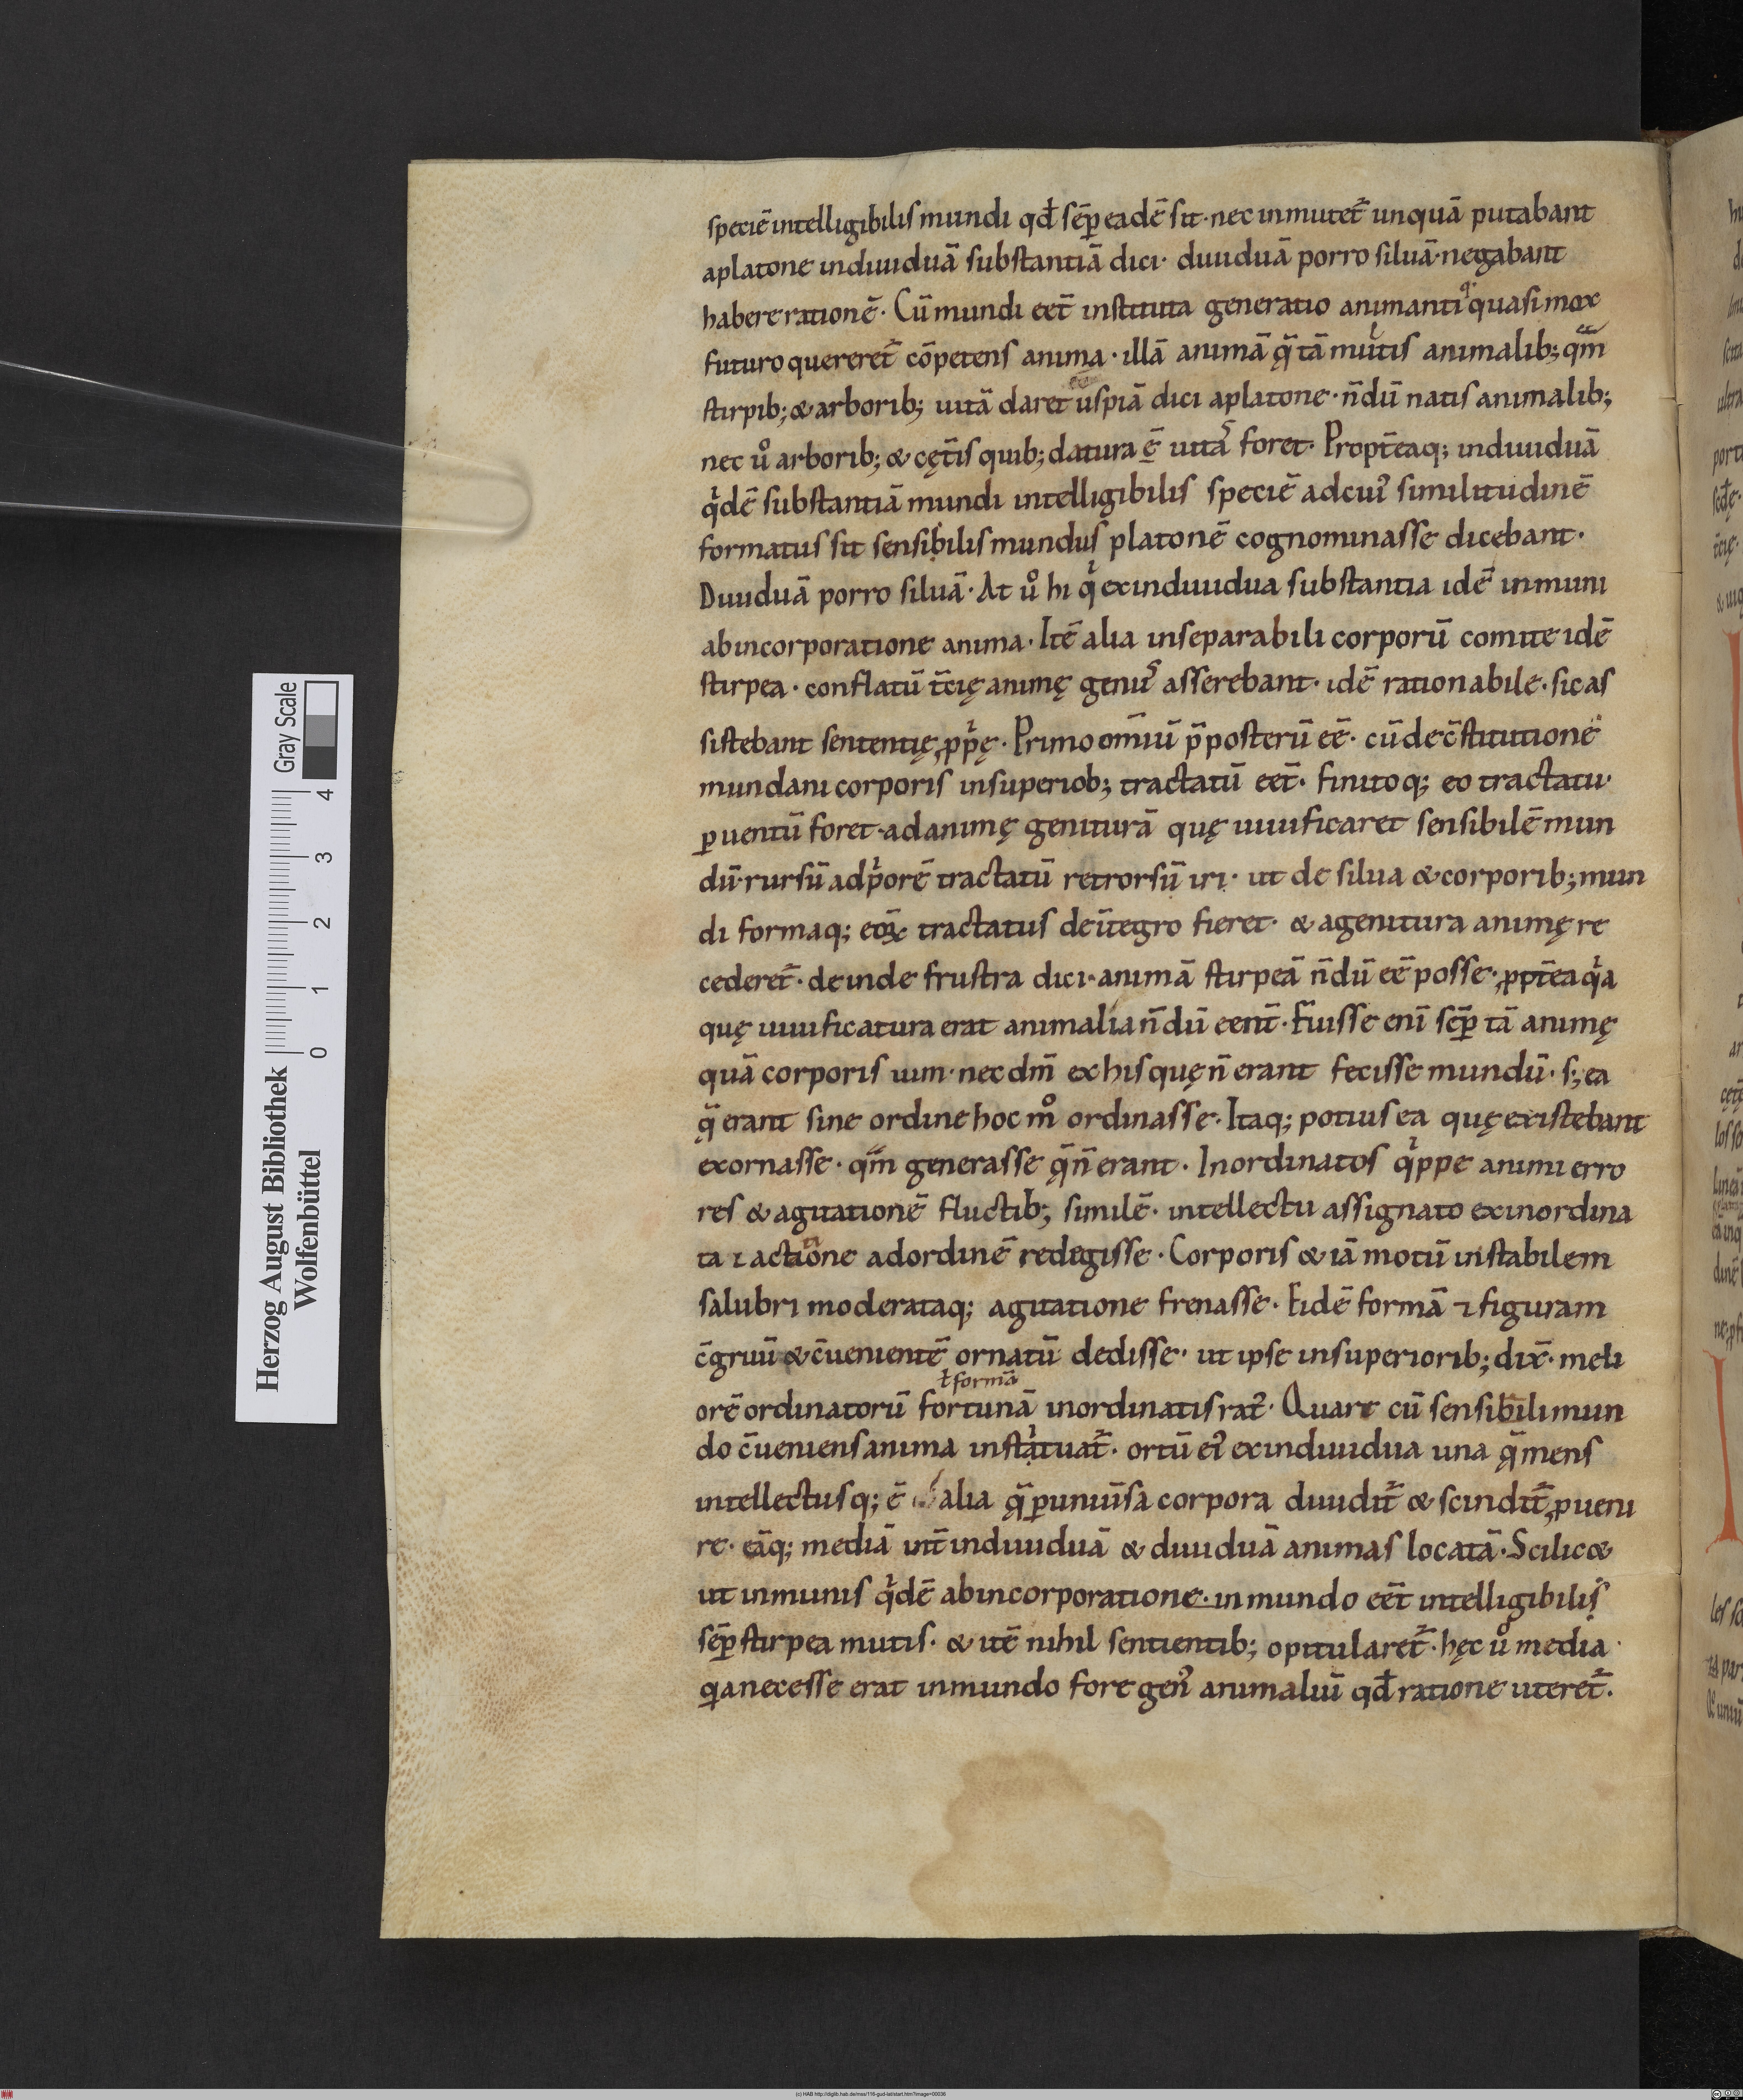 speciē intelligibilis mundi qđ sēp eadē sit · nec inmutet᷑ unquā putabant
aplatone indiuiduā substantiā dici · diuiduā porro siluā · negabant
habere rationē · Cū mundi eēt instituta generatio animanti q quasi mox
futuro quereret᷑ cōpetens anima · illā animā q̄ tā mutis animalib; qm̄
stirpib; & arborib; uitā daret uspiā dici aplatone · n̄dū natis animalib;
nec uͦ arborib; & cęt̄is quib; datura ē uitā foret · Propt̄eaq; indiuiduā
qͥdē substantiā mundi intelligibilis speciē adcui᾿ similitudinē
formatus sit sensibilis mundus platonē cognominasse dicebant ·
Diuiduā porro siluā · At uͦ hi qͥ exindiuidua substantia idē inmuni
abincorporatione anima · Itē alia inseparabili corporū comite idē
stirpea · conflatū t̄cię animę genu᾿ asserebant · idē rationabile · sic as
sistebant sententię ꝓpͥę · Primo omīū p̄posterū eē · cū de c̄stitutione
mundani corporis insuperiob; tractatū eēt · finitoq; eo tractatu ·
ꝑuentū foret · adanimę geniturā quę uiuificaret sensibilē mun
dū · rursū adpͥorē tractatū retrorsū iri · ut de silua & corporib; mun
di formaq; eoꝝ tractatus deītegro fieret · & agenitura animę re
cederet᷑ · deinde frustra dici · animā stirpeā n̄dū eē posse · ꝓpt̄ea qͥa
quę uiuificatura erat animalia n̄dū eent̄ · Fuisse enī sēp tā animę
quā corporis uim · nec dm̄ ex his quę n̄ erant fecisse mundū · s; ea
q̄ erant sine ordine hoc mͦ ordinasse · Itaq; potius ea quę existebant
exornasse · qm̄ generasse q̄ n̄ erant · Inordinatos qͥppe animi erro
res & agitationē fluctib; similē · intellectu assignato exinordina
ta ⁊ actione adordinē redegisse · Corporis & iā motū instabilem
salubri moderataq; agitatione frenasse · Eidē formā ⁊ figuram
c̄gruū & c̄uenientē ornatū dedisse · ut ipse insuperiorib; dix̄ · meli
ł formā
orē ordinatorū fortunā inordinatis rat᾿ · Quare cū sensibili mun
do c̄ueniens anima instituat᷑ · ortū ei᾿ exindiuidua una q̄ mens
intellectusq; ē alia q̄ ꝑuniūsa corpora diuidit᷑ & scindit᷑ ꝓueni
re · eāq; mediā int̄ indiuiduā & diuiduā animas locatā · Scilic&
ut inmunis qͥdē abincorporatione · in mundo eēt intelligibilis
sēp stirpea mutis · & itē nihil sentientib; opitularet᷑ · hęc uͦ media ·
qia necesse erat inmundo fore gen᾿ animaliū qđ ratione uteret᷑ ·
Herzog August Bibliothek
Wolfenbüttel
Gray Scale
0 1 2 3 4
(c) HAB http://diglib.hab.de/mss/116-gud-lat/start.htm?image=00036